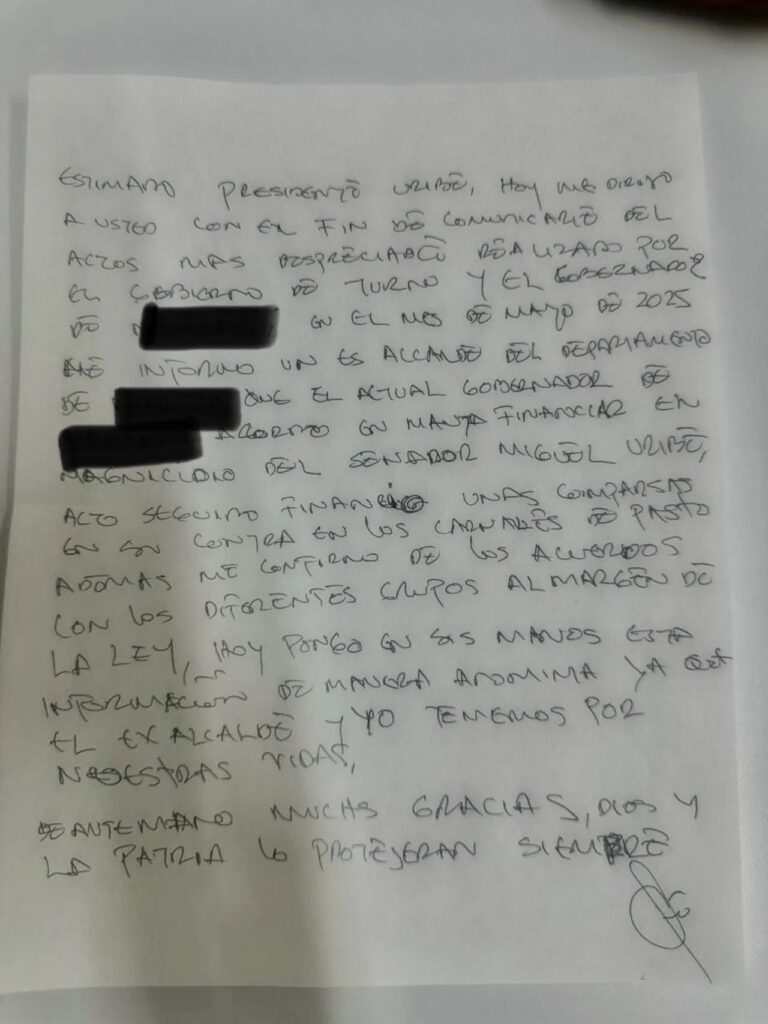 ESTIMADO PRESIDENTE URIBE, HOY ME DIRIJO
A USTED CON EL FIN DE COMUNICARLE DEL
ACTOS MAS DESPRECIABLE REALIZADO POR
EL GOBIERNO DE TURNO Y EL GOBERNADOR
DE EN EL MES DE MAYO DE 2025
ME INFORMO UN ES ALCALDE DEL DEPARTAMENTO
DE QUE EL ACTUAL GOBERNADOR DE
EN FINANCIAR EN
MAGNICIDIO DEL SENADOR MIGUEL URIBE,
ACTO SEGUIDO FINANCIO UNAS COMPARSAS
EN SU CONTRA EN LOS CARNABES DE PASTO
ADEMAS ME CONFIRMO DE LOS ACUERDOS
CON LOS DIFERENTES GRUPOS AL MARGEN DE
LA LEY, HOY PONGO EN SUS MANOS ESTA
INFORMACION DE MANERA ANONIMA YA QUE
EL EX ALCALDE Y YO TEMEMOS POR
NUESTRAS VIDAS,
DE ANTEMANO MUCHS GRACIAS, DIOS Y
LA PATRIA LO PROTEJERAN SIEMPRE